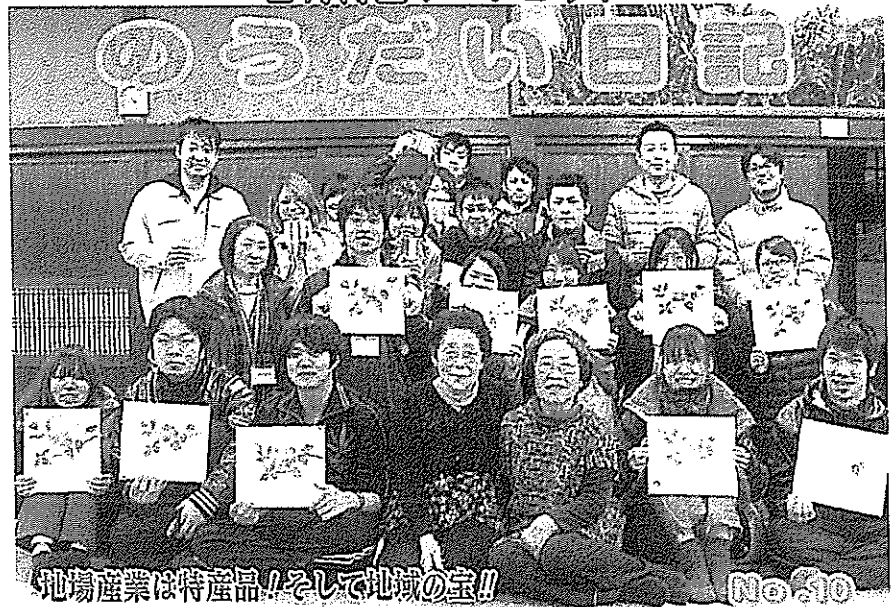 のうだい日記
地場産業は特産品!そして地域の宝!!
No.10